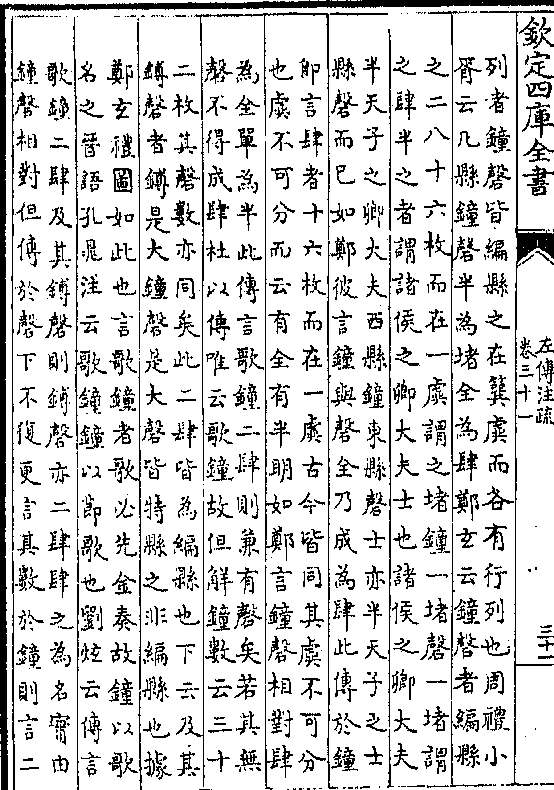 欽定四庫全書
左傳注疏
卷三十一
三十一
列者鐘磬皆編縣之在簨虡而各有行列也周禮小
胥云凡縣鐘磬半為堵全為肆鄭玄云鐘磬者編縣
之二八十六枚而在一虡謂之堵鐘一堵磬一堵謂
之肆半之者謂諸侯之卿大夫士也諸侯之卿大夫
半天子之卿大夫西縣鐘東縣磬士亦半天子之士
縣磬而已如鄭彼言鐘與磬全乃成為肆此傳於鐘
即言肆者十六枚而在一虡古今皆同其虡不可分
也虡不可分而云有全有半明如鄭言鐘磬相對肆
為全單為半此傳言歌鐘二肆則兼有磬矣若其無
磬不得成肆杜以傳唯云歌鐘故但解鐘數云三十
二枚其磬數亦同矣此二肆皆為編縣也下云及其
鎛磬者鎛是大鐘磬是大磬皆特縣之非編縣也據
鄭玄禮圖如此也言歌鐘者歌必先金奏故鐘以歌
名之晉語孔晁注云歌鐘鐘以節歌也劉炫云傳言
歌鐘二肆及其鎛磬則鎛磬亦二肆肆之為名實由
鐘磬相對但傳於磬下不復更言其數於鐘則言二